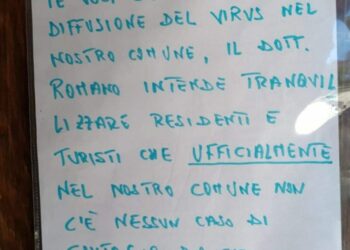 TE VOCI
DIFFUSIONE DEL VIRUS NEL
NOSTRO COMUNE, IL DOTT.
ROMANO INTENDE TRANQUIL
LIZZARE RESIDENTI E
TURISTI CHE UFFICIALMENTE
NEL NOSTRO COMUNE NON
C'È NESSUN CASO DI